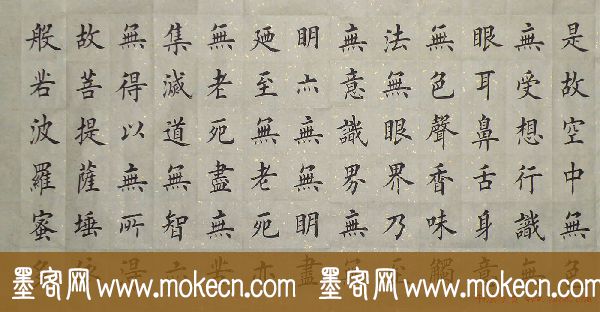 是故空中無色
無受想行識無
眼耳鼻舌身意
無色聲香味觸
法無眼界乃至
無意識界無
明亦無無明盡
廼至無老死亦
無老死盡無苦
集滅道無智亦
無得以無所得
故菩提薩埵依
般若波羅蜜多
墨客网 www.mokecn.com 墨客网 www.mokecn.com